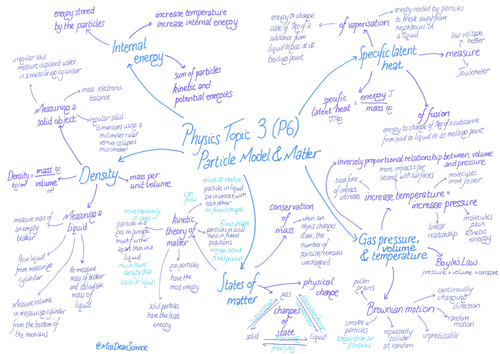 Physics Topic 3 (P6)
Particle Model & Matter
Internal
energy
energy stored
by the particles
increase temperature
increase internal energy
sum of particles
kinetic and
potential energies
Specific latent
heat
of vaporisation
energy to change
state of 1kg of a
substance from
liquid to gas at its
boiling point
energy needed by particles
to break away from
neighbours in
a liquid
measure
low-voltage
heater
Joulemeter
specific
latent heat = energy J
J/kg
mass kg
of fusion
energy to change 1kg of a substance
from solid to liquid at its melting point
Density
Density = mass kg
volume
mass per
unit volume
Measuring a
solid object
irregular solid
measure displaced water
in a measuring cylinder
mass electronic
balance
regular solid
dimensions using a
millimeter ruler
vernier callipers
micrometer
Measuring a
liquid
measure mass of
an empty
beaker
Pour liquid
from measuring
cylinder
Measure volume
in measuring cylinder
from the bottom of
the meniscus
Re measure
mass of beaker
and calculate
mass of
liquid
States of
matter
kinetic
theory of
matter
can
flow
particles in liquid
are in contact with
each other
no fixed shape
fixed shape
particles in solid
held in fixed
positions
vibrate about
fixed point
particles in a
gas move
much further
apart than in a
liquid
much lower
density than
solid or liquid
gas particles
have the
most energy
Solid particles
have the least
energy
conservation
of mass
when an
object changes
state, the
number of
particles remains
unchanged
physical
change
changes
of state
gas
solid
liquid
melting
freezing
Gas pressure,
volume
& temperature
inversely proportional relationship between volume
and pressure
more impacts per
second with surfaces
total force
of impact
increases
molecules
move faster
increase temperature =
increase pressure
linear
relationship
molecules
gain
kinetic
energy
Boyle's Law
pressure x volume = constant
Brownian motion
pollen
grains
smoke
particles
repeatedly
collide
at random
continuously
changing
direction
random
motion
unpredictable
@MissDeanScience